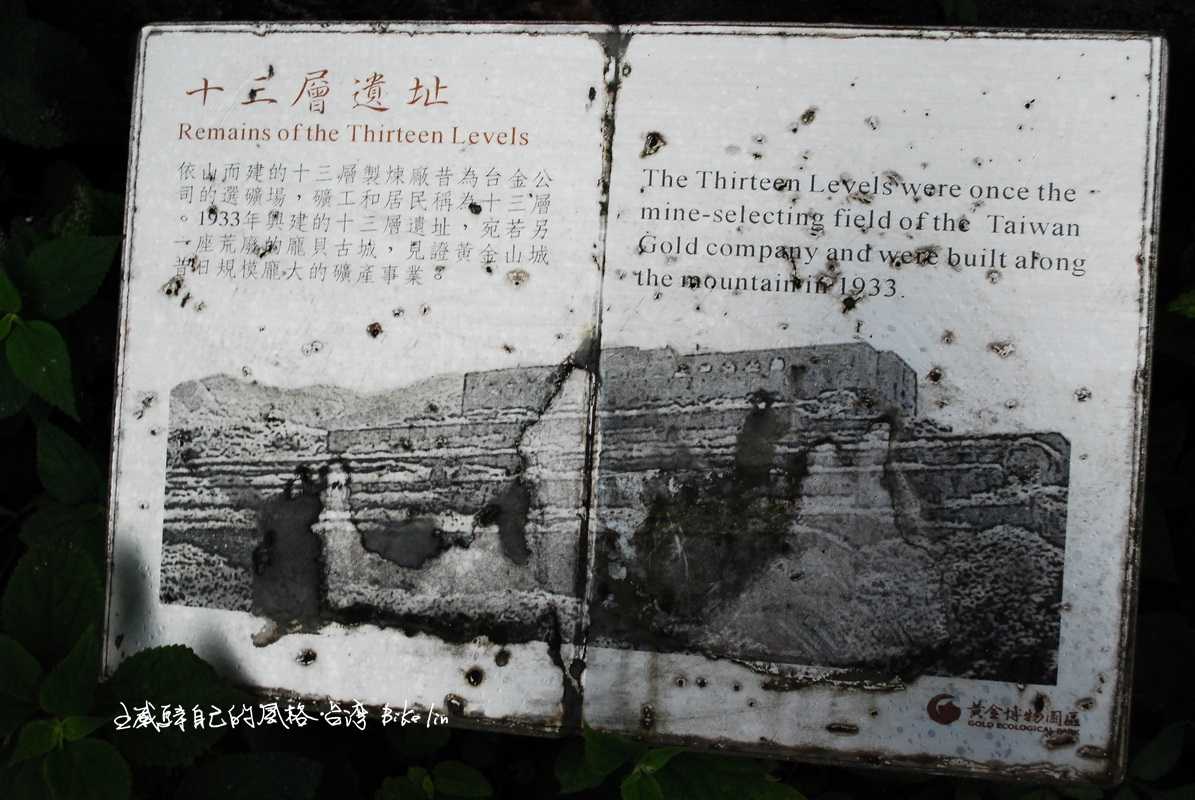 十三層遺址
Remains of the Thirteen Levels
依山而建的十三層製煉廠昔為台金公
司的選礦場，礦工和居民稱為十三層
。1933年興建的十三層遺址，宛若另
一座荒廢的龐貝古城，見證黃金山城
昔日規模龐大的礦產事業。
The Thirteen Levels were once the
mine-selecting field of the Taiwan
Gold company and were built along
the mountain in 1933.
黃金博物園區
GOLD ECOLOGICAL PARK
自己的風格.台湾